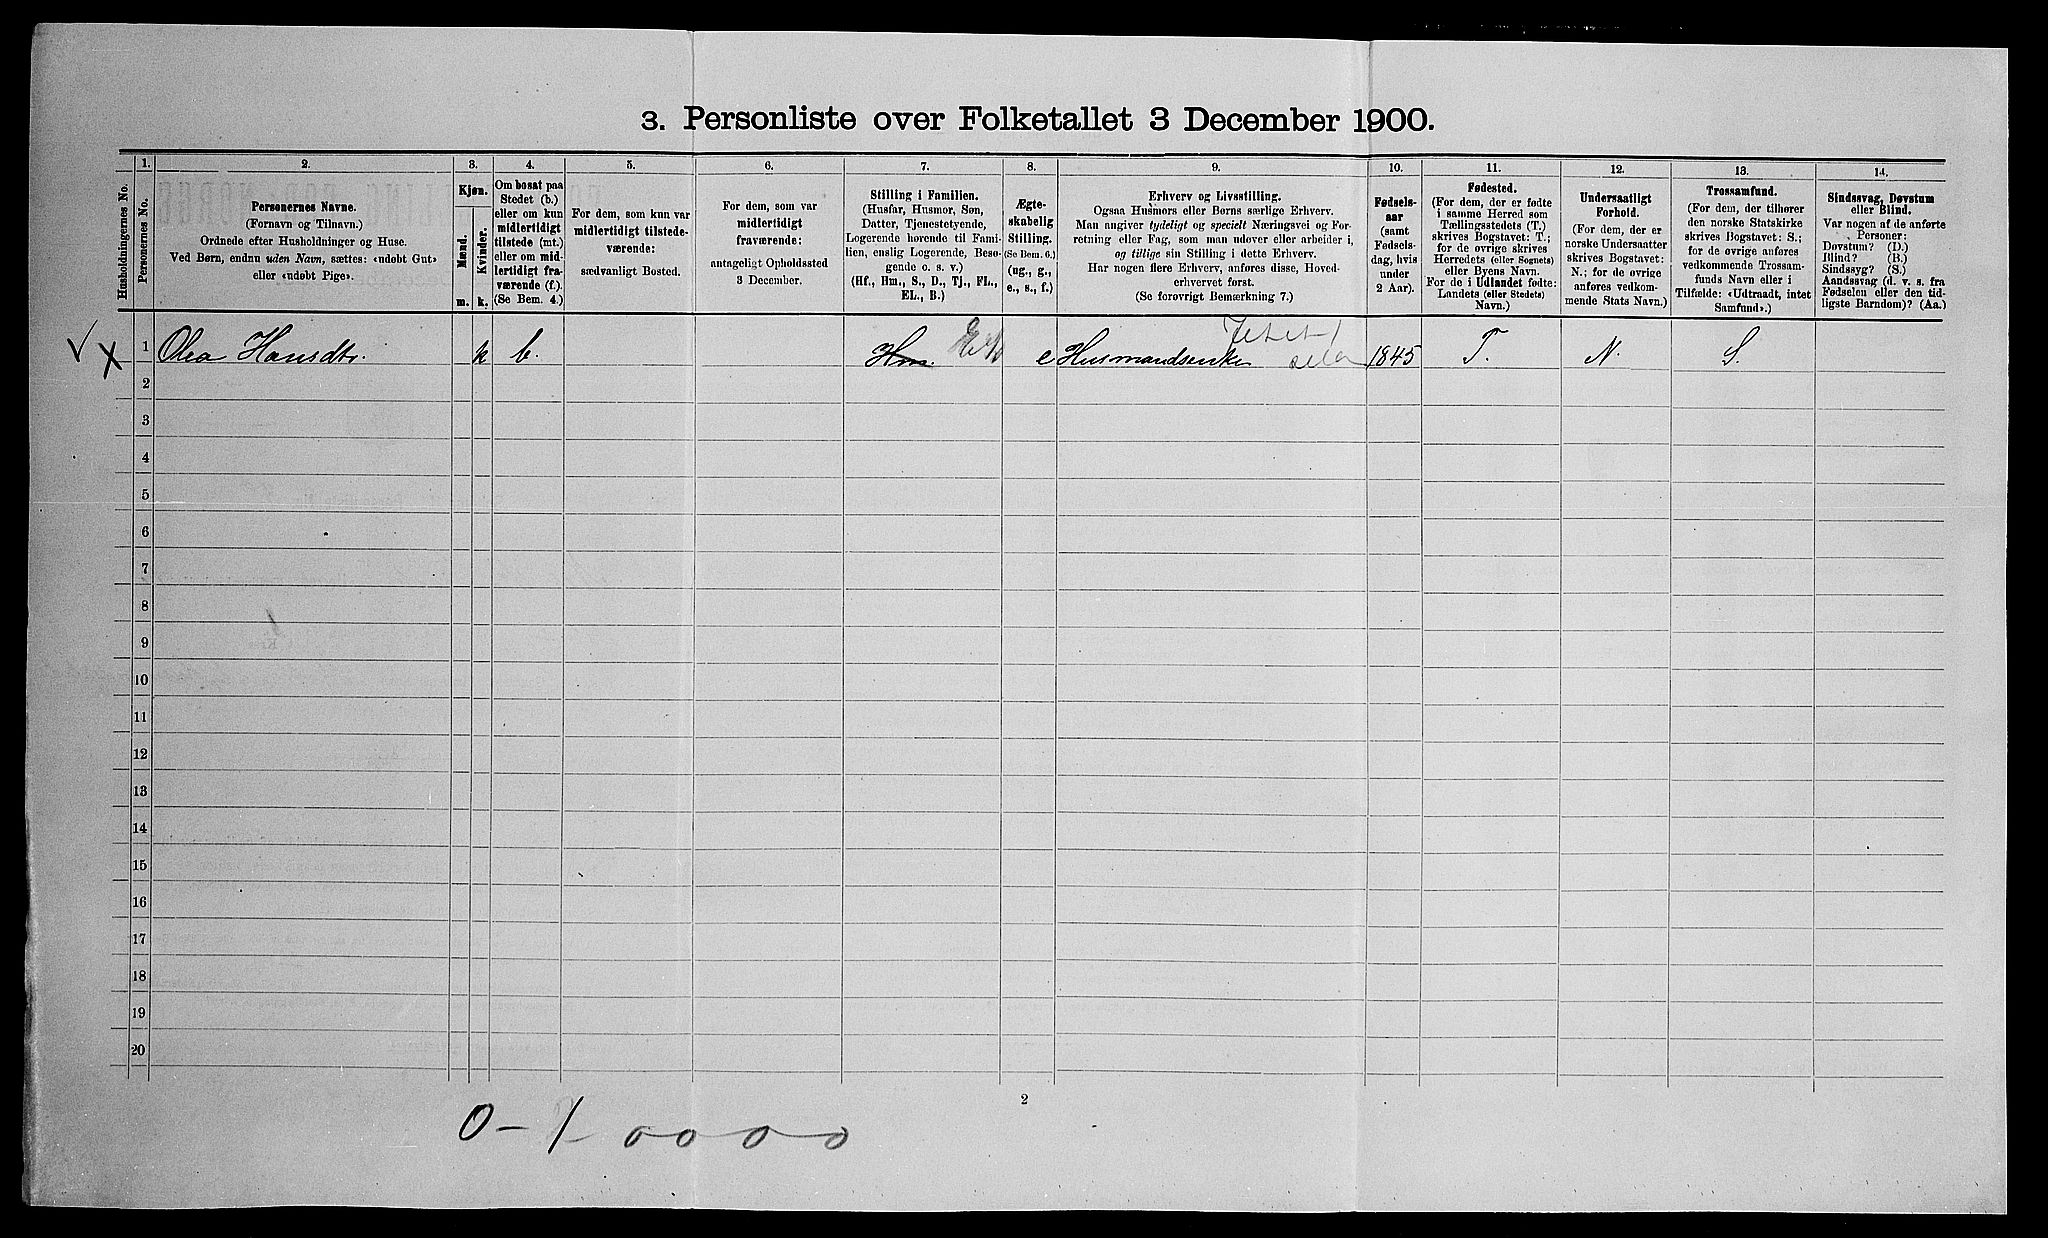 3. Personliste over Folketallet 3 December 1900.
Husholdningernes No.
1.
Personernes No.
2.
Personernes Navne.
(Fornavn og Tilnavn.)
Ordnede efter Husholdninger og Huse.
Ved Børn, endnu uden Navn, sættes: «udøbt Gut»
eller «udøbt Pige».
3.
Kjøn.
Mænd.
Kvinder.
m. k.
4.
Om bosat paa
Stedet (b.)
eller om kun
midlertidigt
tilstede (mt.)
eller om mid-
lertidigt fra-
værende (f.).
(Se Bem. 4.)
5.
For dem, som kun var
midlertidigt tilstede-
værende:
sædvanligt Bosted.
6.
For dem, som var
midlertidigt
fraværende:
antageligt Opholdssted
3 December.
7.
Stilling i Familien.
(Husfar, Husmor, Søn,
Datter, Tjenestetyende,
Logerende hørende til Fami-
lien, enslig Logerende, Besø-
gende o. s. v.)
(Hf., Hm., S., D., Tj., FL.,
EL., B.)
8.
Ægte-
skabelig
Stilling.
(Se Bem. 6.)
(ug., g.,
e., s., f.)
9.
Erhverv og Livsstilling.
Ogsaa Husmors eller Børns særlige Erhverv.
Man angiver tydeligt og specielt Næringsvei og For-
retning eller Fag, som man udover eller arbeider i,
og tillige sin Stilling i dette Erhverv.
Har nogen flere Erhverv, anføres disse, Hoved-
erhvervet først.
(Se forøvrigt Bemærkning 7.)
10.
Fødsels-
aar
(samt
Fødsels-
dag, hvis
under
2 Aar).
11.
Fødested.
(For dem, der er fødte
i samme Herred som
Tællingsstedets (T.)
skrives Bogstavet: T.;
for de øvrige skrives
Herredets (eller Sognets)
eller Byens Navn.
For de i Udlandet fødte:
Landets (eller Stedets)
Navn.)
12.
Undersaatligt
Forhold.
(For dem, der er
norske Undersaatter
skrives Bogstavet:
N.; for de øvrige
anføres vedkom-
mende Stats Navn.)
13.
Trossamfund.
(For dem, der tilhører
den norske Statskirke
skrives Bogstavet: S.;
for de øvrige anføres
vedkommende Trossam-
funds Navn eller i
Tilfælde: «Udtraadt, intet
Samfund».)
14.
Sindssvag, Døvstum
eller Blind.
Var nogen af de anførte
Personer:
Døvstum? (D.)
Blind? (B.)
Sindssyg? (S.)
Aandssvag (d. v. s. fra
Fødselen eller den tid-
ligste Barndom)? (Aa.)
1 Olea Hansdtr. k b. Hm. e Husmandsenke 1845 T. N. S.
2
3
4
5
6
7
8
9
10
11
12
13
14
15
16
17
18
19
20
2
0 - 1 0 0 0 0